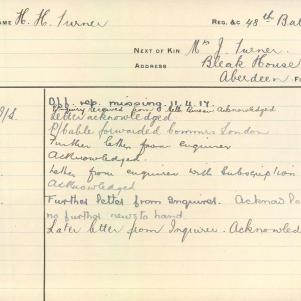 NAME H. H. Turner
REG. &C 48th Bat
NEXT OF KIN Mrs J. Turner.
ADDRESS Bleak House
Aberdeen
Off. rep. missing 11.4.17.
Enquiry received from Acknowledged
Letter acknowledged.
P/Cable forwarded Commrs London
Further letter from enquirer
Acknowledged.
Letter from enquirer with Subscription
Acknowledged
Further letter from Enquirer. Acknow
no further news to hand.
Later letter from Inquirer. Acknowled